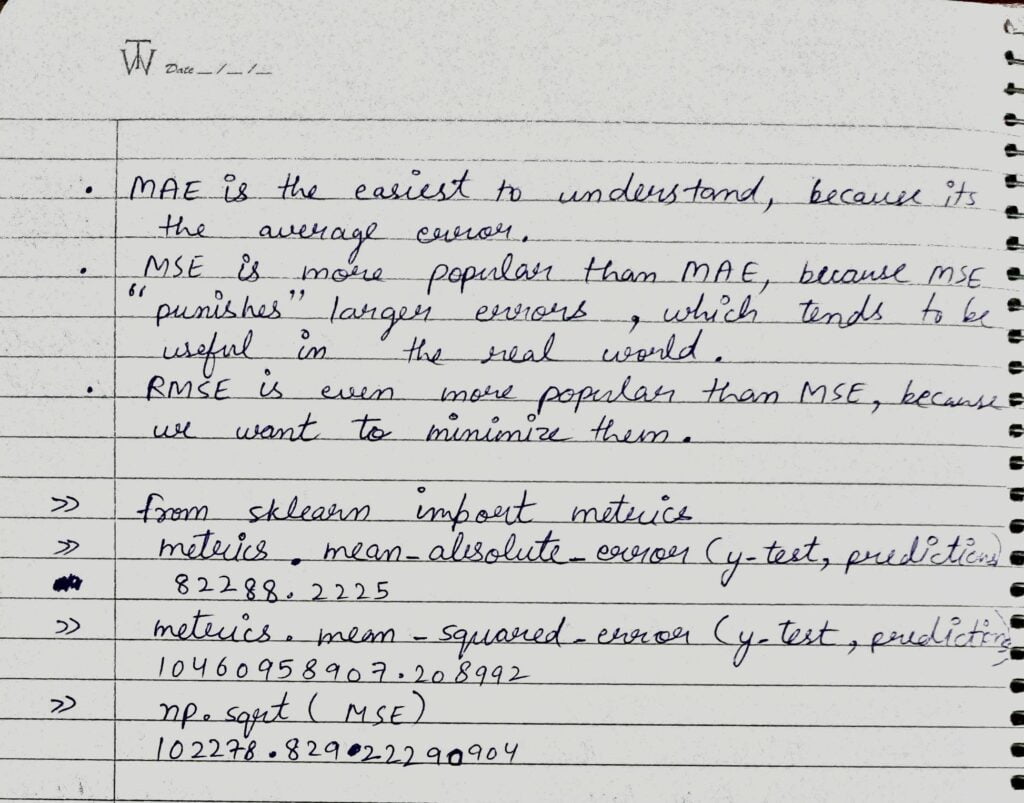 TW Date _/_/_
• MAE is the easiest to understand, because its
the average error.
• MSE is more popular than MAE, because MSE
"punishes" larger errors, which tends to be
useful in the real world.
• RMSE is even more popular than MSE, because
we want to minimize them.
>> from sklearn import metrics
>> metrics.mean_absolute_error(y-test, predictions)
82288.2225
>> metrics.mean_squared_error(y-test, predictions)
10460958907.208992
>> np.sqrt(MSE)
102278.82922290904